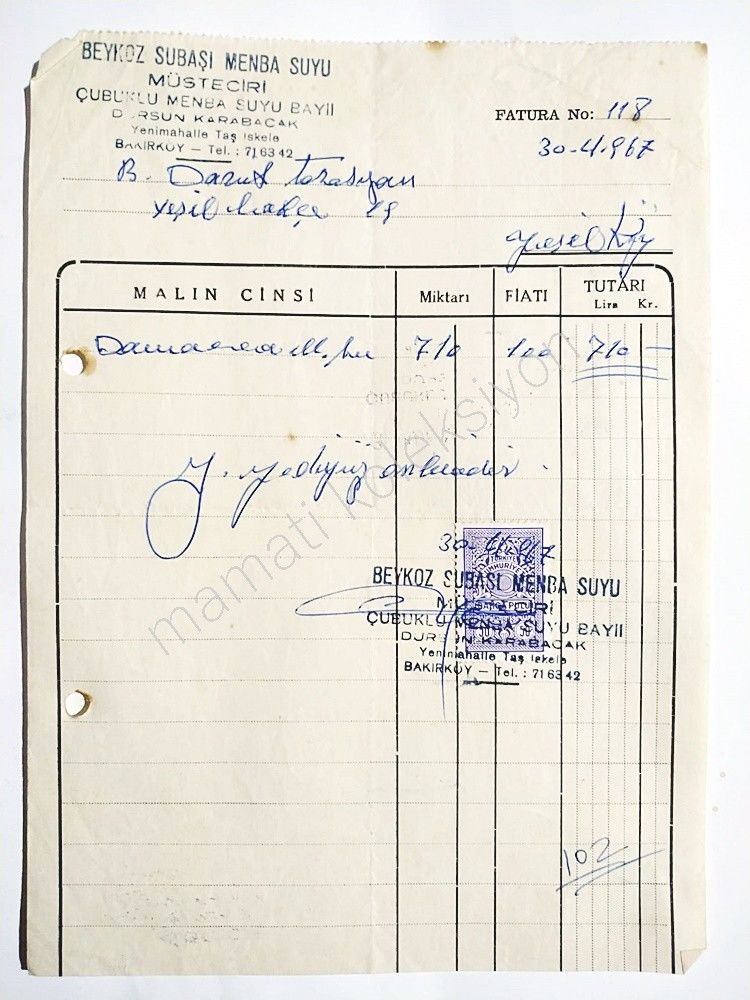 BEYKOZ SUBAŞI MENBA SUYU
MÜSTECİRİ
ÇUBUKLU MENBA SUYU BAYİİ
DURSUN KARABACAK
Yenimahalle Taş İskele
BAKIRKÖY — Tel. : 71 63 42
FATURA No: 118
30-4.967
B.
Yeşil bahçe
Yeşil Köy
MALIN CİNSİ
Miktarı
FİATI
TUTARI
Lira Kr.
Damacana
710
100
710 —
Y. Yediyüz onliradır.
30-4-967
TÜRKİYE
CUMHURİYETİ
DAMGA PULU
BEYKOZ SUBAŞI MENBA SUYU
MÜSTECİRİ
ÇUBUKLU MENBA SUYU BAYİİ
DURSUN KARABACAK
Yenimahalle Taş İskele
BAKIRKÖY — Tel. : 71 63 42
102
mamati koleksiyon